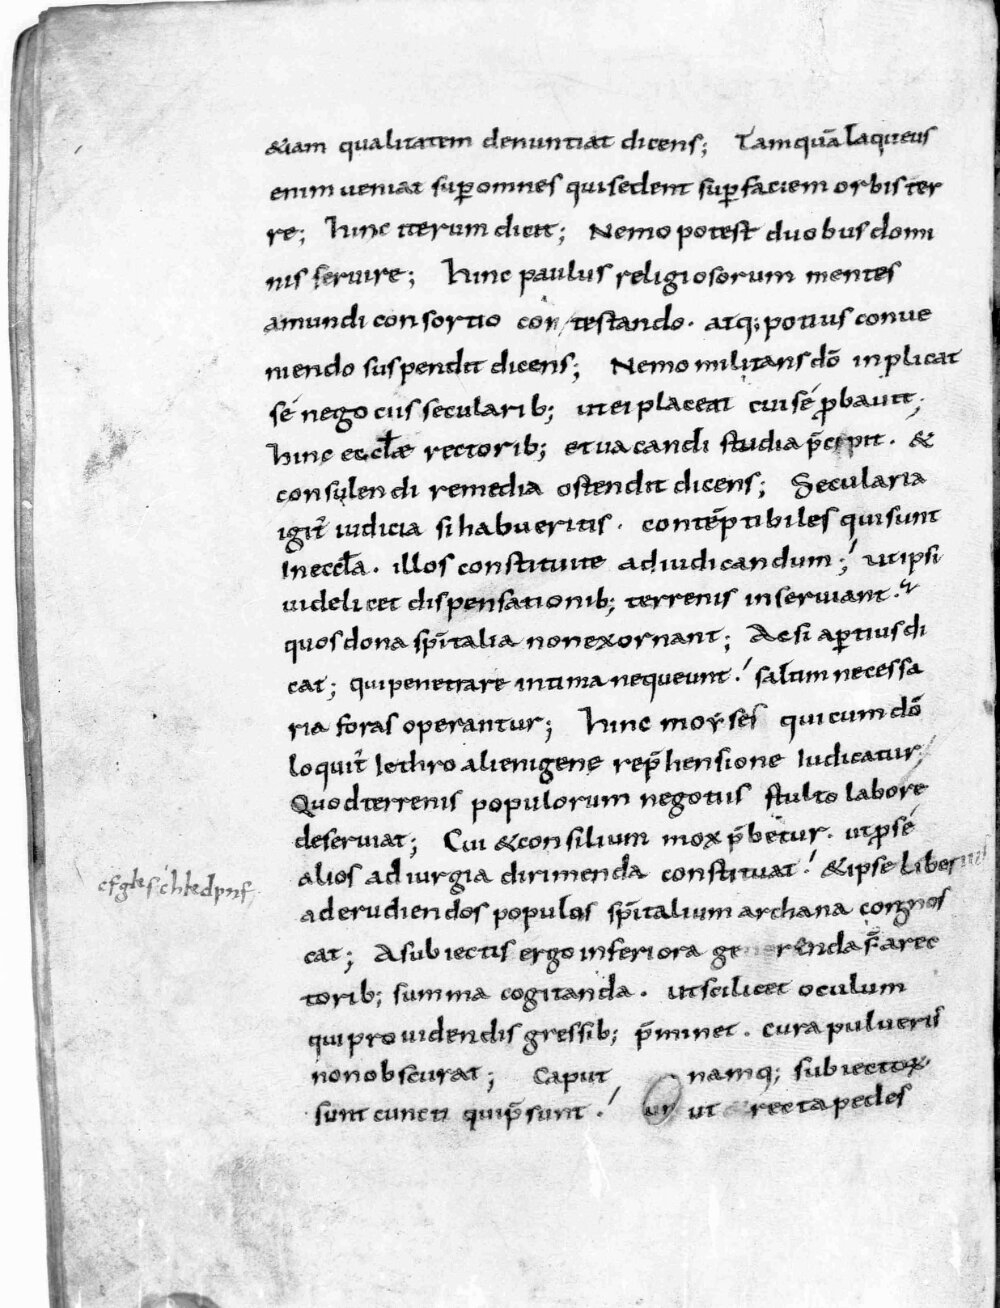 &iam qualitatem denuntiat dicens; Tamquā laqueus
enim ueniat sup̱ omnes qui sedent sup̱ faciem orbis ter
re; hinc iterum dicit; Nemo potest duobus domi
nis seruire; hinc paulus religiosorum mentes
a mundi consortio contestando. atq; potius conue
niendo suspendit dicens; Nemo militans dō inplicat
sé negociis secularib; ut ei placeat cui sé ꝓbauit;
hinc eccłae rectorib; et uacandi studia p̄cipit. &
consulendi remedia ostendit dicens; Secularia
igit̄ iudicia si habueritis. contēptibiles qui sunt
In eccła. illos constituite ad iudicandum; ut ipsi
uidelicet dispensationib; terrenis inseruiant.
quos dona sp̄italia non exornant; Ac si ap̱tius di
cat; qui penetrare intima nequeunt. saltim necessa
ria foras operantur; hinc moyses qui cum dō
loquit̄ Iethro alienigene rep̄hensione Iudicatur;
Quod terrenis populorum negotiis stulto labore
deseruiat; Cui & consilium mox p̄betur. ut ꝓ sé
alios ad iurgia dirimenda constituat. & ipse liber
ad erudiendos populos sp̄italium archana congnos
cat; A subiectis ergo inferiora gerenda s̄ a rec
torib; summa cogitanda. ut scilicet oculum
qui prouidendis gressib; p̄minet. cura pulueris
non obscurat; Caput namq; subiectoꝝ
sunt cuncti qui p̄sunt. ut recta pedes